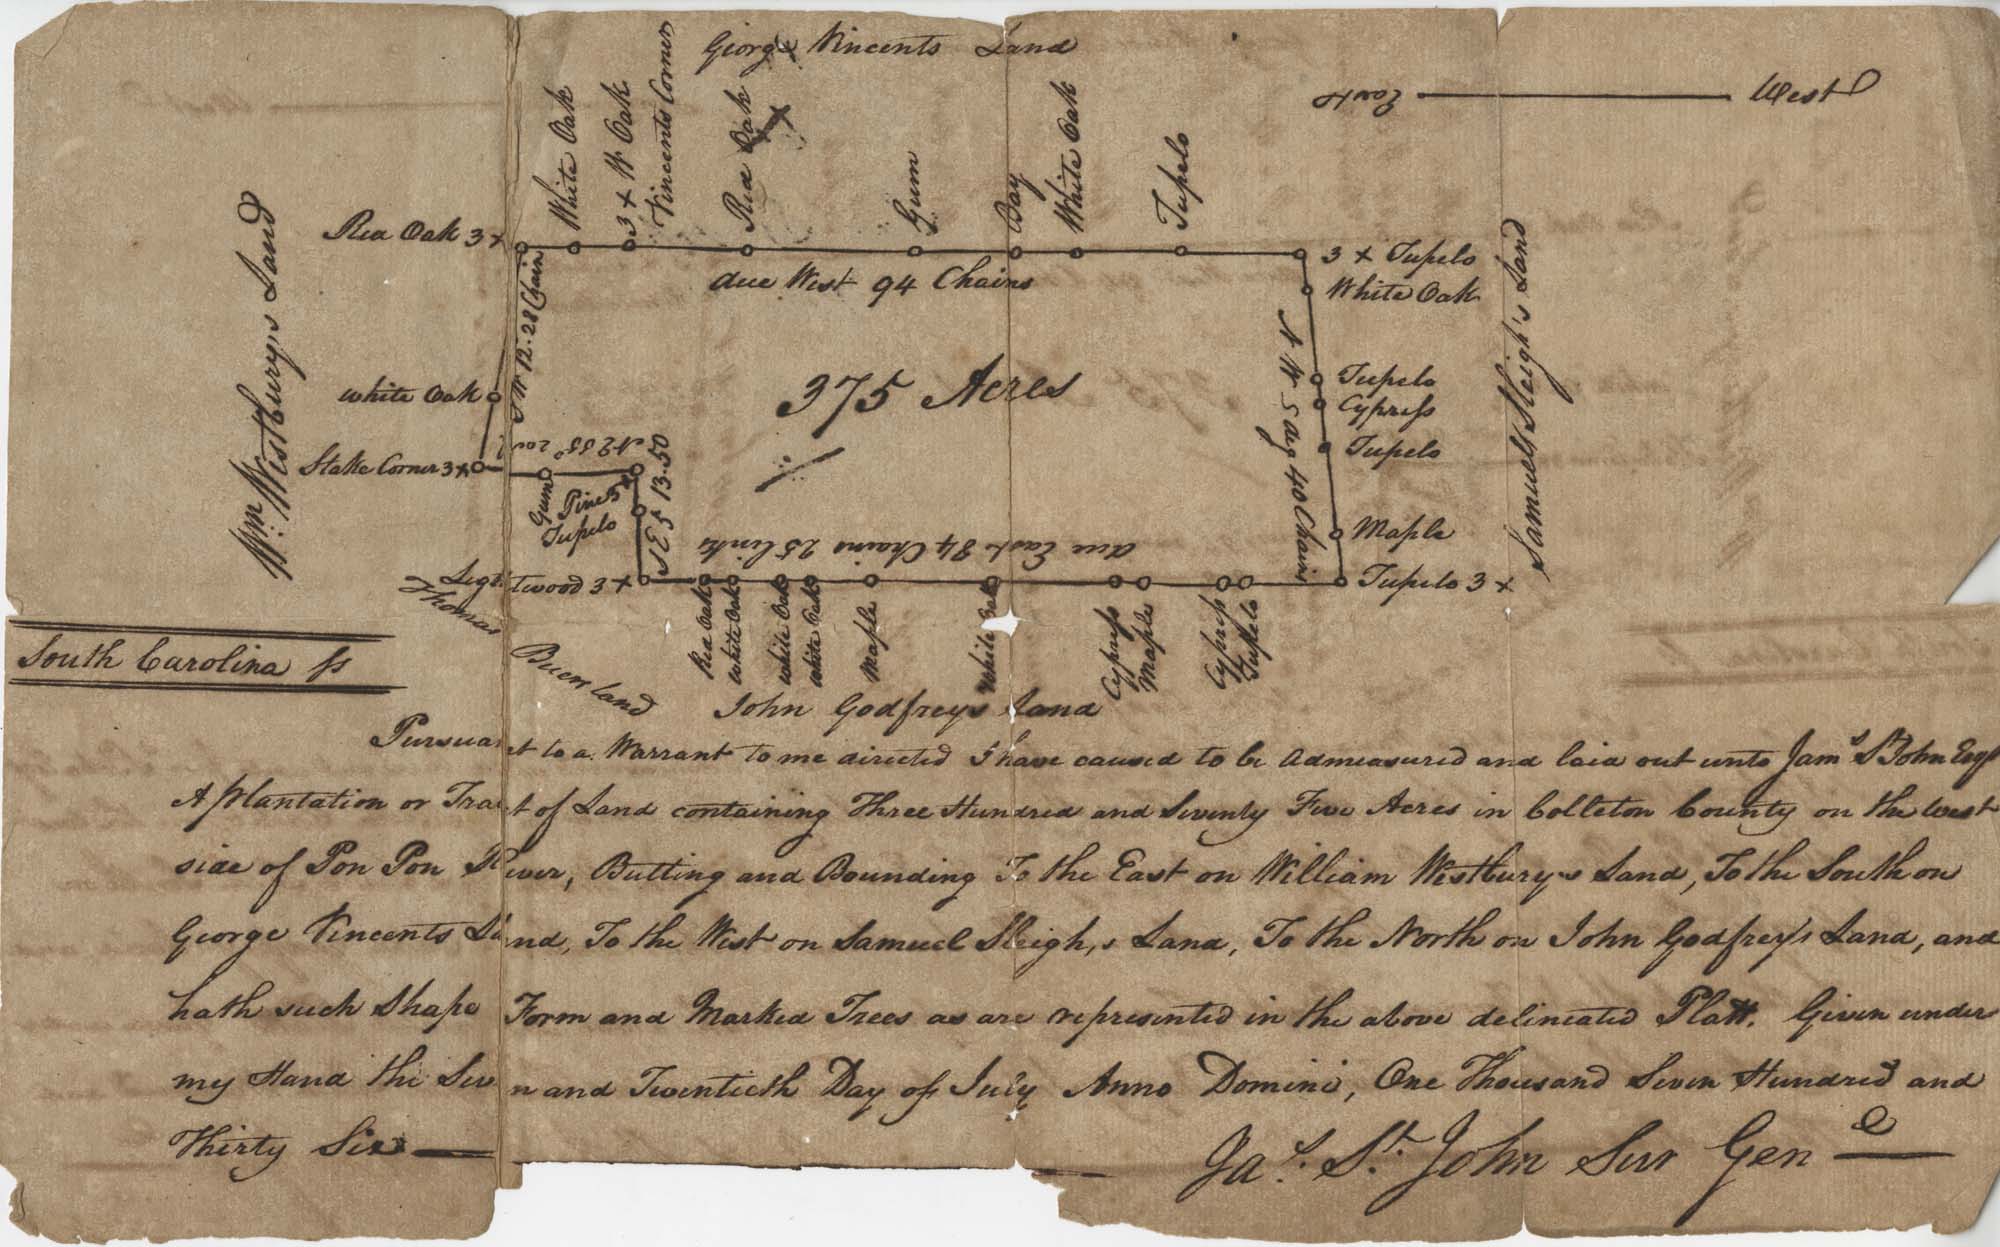 George Vincents Land
East West
White Oak
3 x W Oak
Vincents Corner
Red Oak
Gum
Bay
White Oak
Tupelo
Red Oak 3 x
3 x Tupelo
White Oak
due West 94 Chains
Wm. Westbury,s Land
S W 12. 28 Chain
N W 5 dg 40 Chains
Samuel Sleigh's Land
375 Acres
white Oak
Tupelo
Cypress
Tupelo
Stake Corner 3 x
Gum
Pine 3 x
Tupelo
S E 5 13.50
due East 84 Chains 25 links
Maple
Lightwood 3 x
Tupelo 3 x
Red Oak
white Oak
white Oak
white Oak
Maple
White Oak
Cypress
Maple
Cypress
Tupelo
Thomas Buer land
South Carolina ss
John Godfreys Land
Pursuant to a Warrant to me directed I have caused to be admeasured and laid out unto Jams St John Esqr
A plantation or Tract of Land containing Three Hundred and Seventy Five Acres in Colleton County on the west
side of Pon Pon River, Butting and Bounding To the East on William Westbury,s Land, To the South on
George Vincents Land, To the West on Samuel Sleigh,s Land, To the North on John Godfrey's Land, and
hath such Shape Form and Marked Trees as are represented in the above delineated Platt. Given under
my Hand the Seven and Twentieth Day of July Anno Domini, One Thousand Seven Hundred and
Thirty Six
Jas. St. John Sur Genl